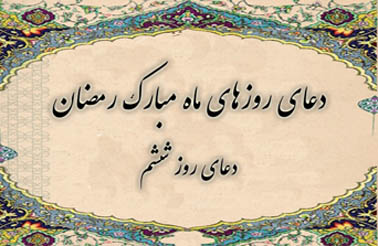 دعای روزهای ماه مبارک رمضان
دعای روز ششم